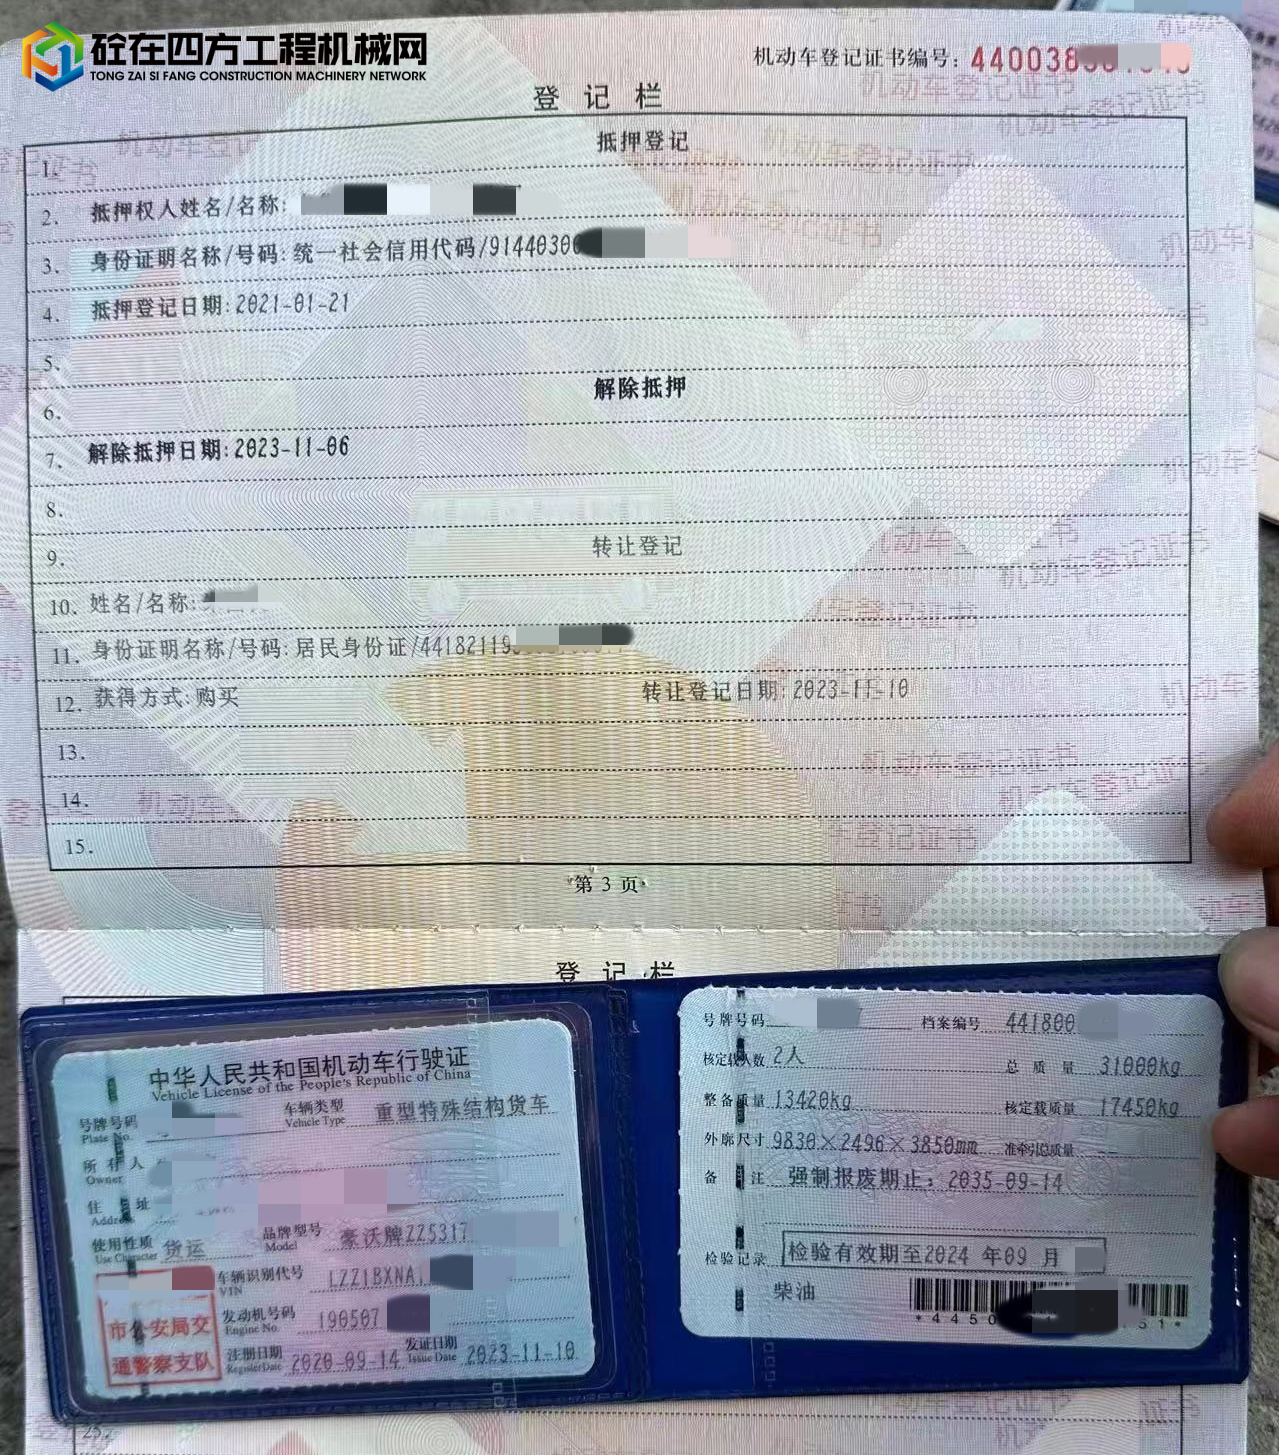 砼在四方工程机械网
TONG ZAI SI FANG CONSTRUCTION MACHINERY NETWORK
机动车登记证书编号: 440038
登 记 栏
1. 抵押登记
2. 抵押权人姓名/名称:
3. 身份证明名称/号码: 统一社会信用代码/91440300
4. 抵押登记日期: 2021-01-21
5.
6. 解除抵押
7. 解除抵押日期: 2023-11-06
8.
9. 转让登记
10. 姓名/名称:
11. 身份证明名称/号码: 居民身份证/44182119
12. 获得方式: 购买 转让登记日期: 2023-11-10
13.
14.
15.
第 3 页
登 记 栏
中华人民共和国机动车行驶证
Vehicle License of the People's Republic of China
号牌号码 Plate No. 车辆类型 Vehicle Type 重型特殊结构货车
所有人 Owner
住址 Address
使用性质 Use Character 货运 品牌型号 Model 豪沃牌ZZ5317
车辆识别代号 VIN LZZ1BXNA
市公安局交
通警察支队
发动机号码 Engine No. 190507
注册日期 Register Date 2020-09-14 发证日期 Issue Date 2023-11-10
号牌号码 档案编号 441800
核定载人数 2人 总质量 31000kg
整备质量 13420kg 核定载质量 17450kg
外廓尺寸 9830×2496×3850mm 准牵引总质量 --
备注 强制报废期止: 2035-09-14
检验记录 检验有效期至2024 年09 月
柴油
*4450 51*
25.